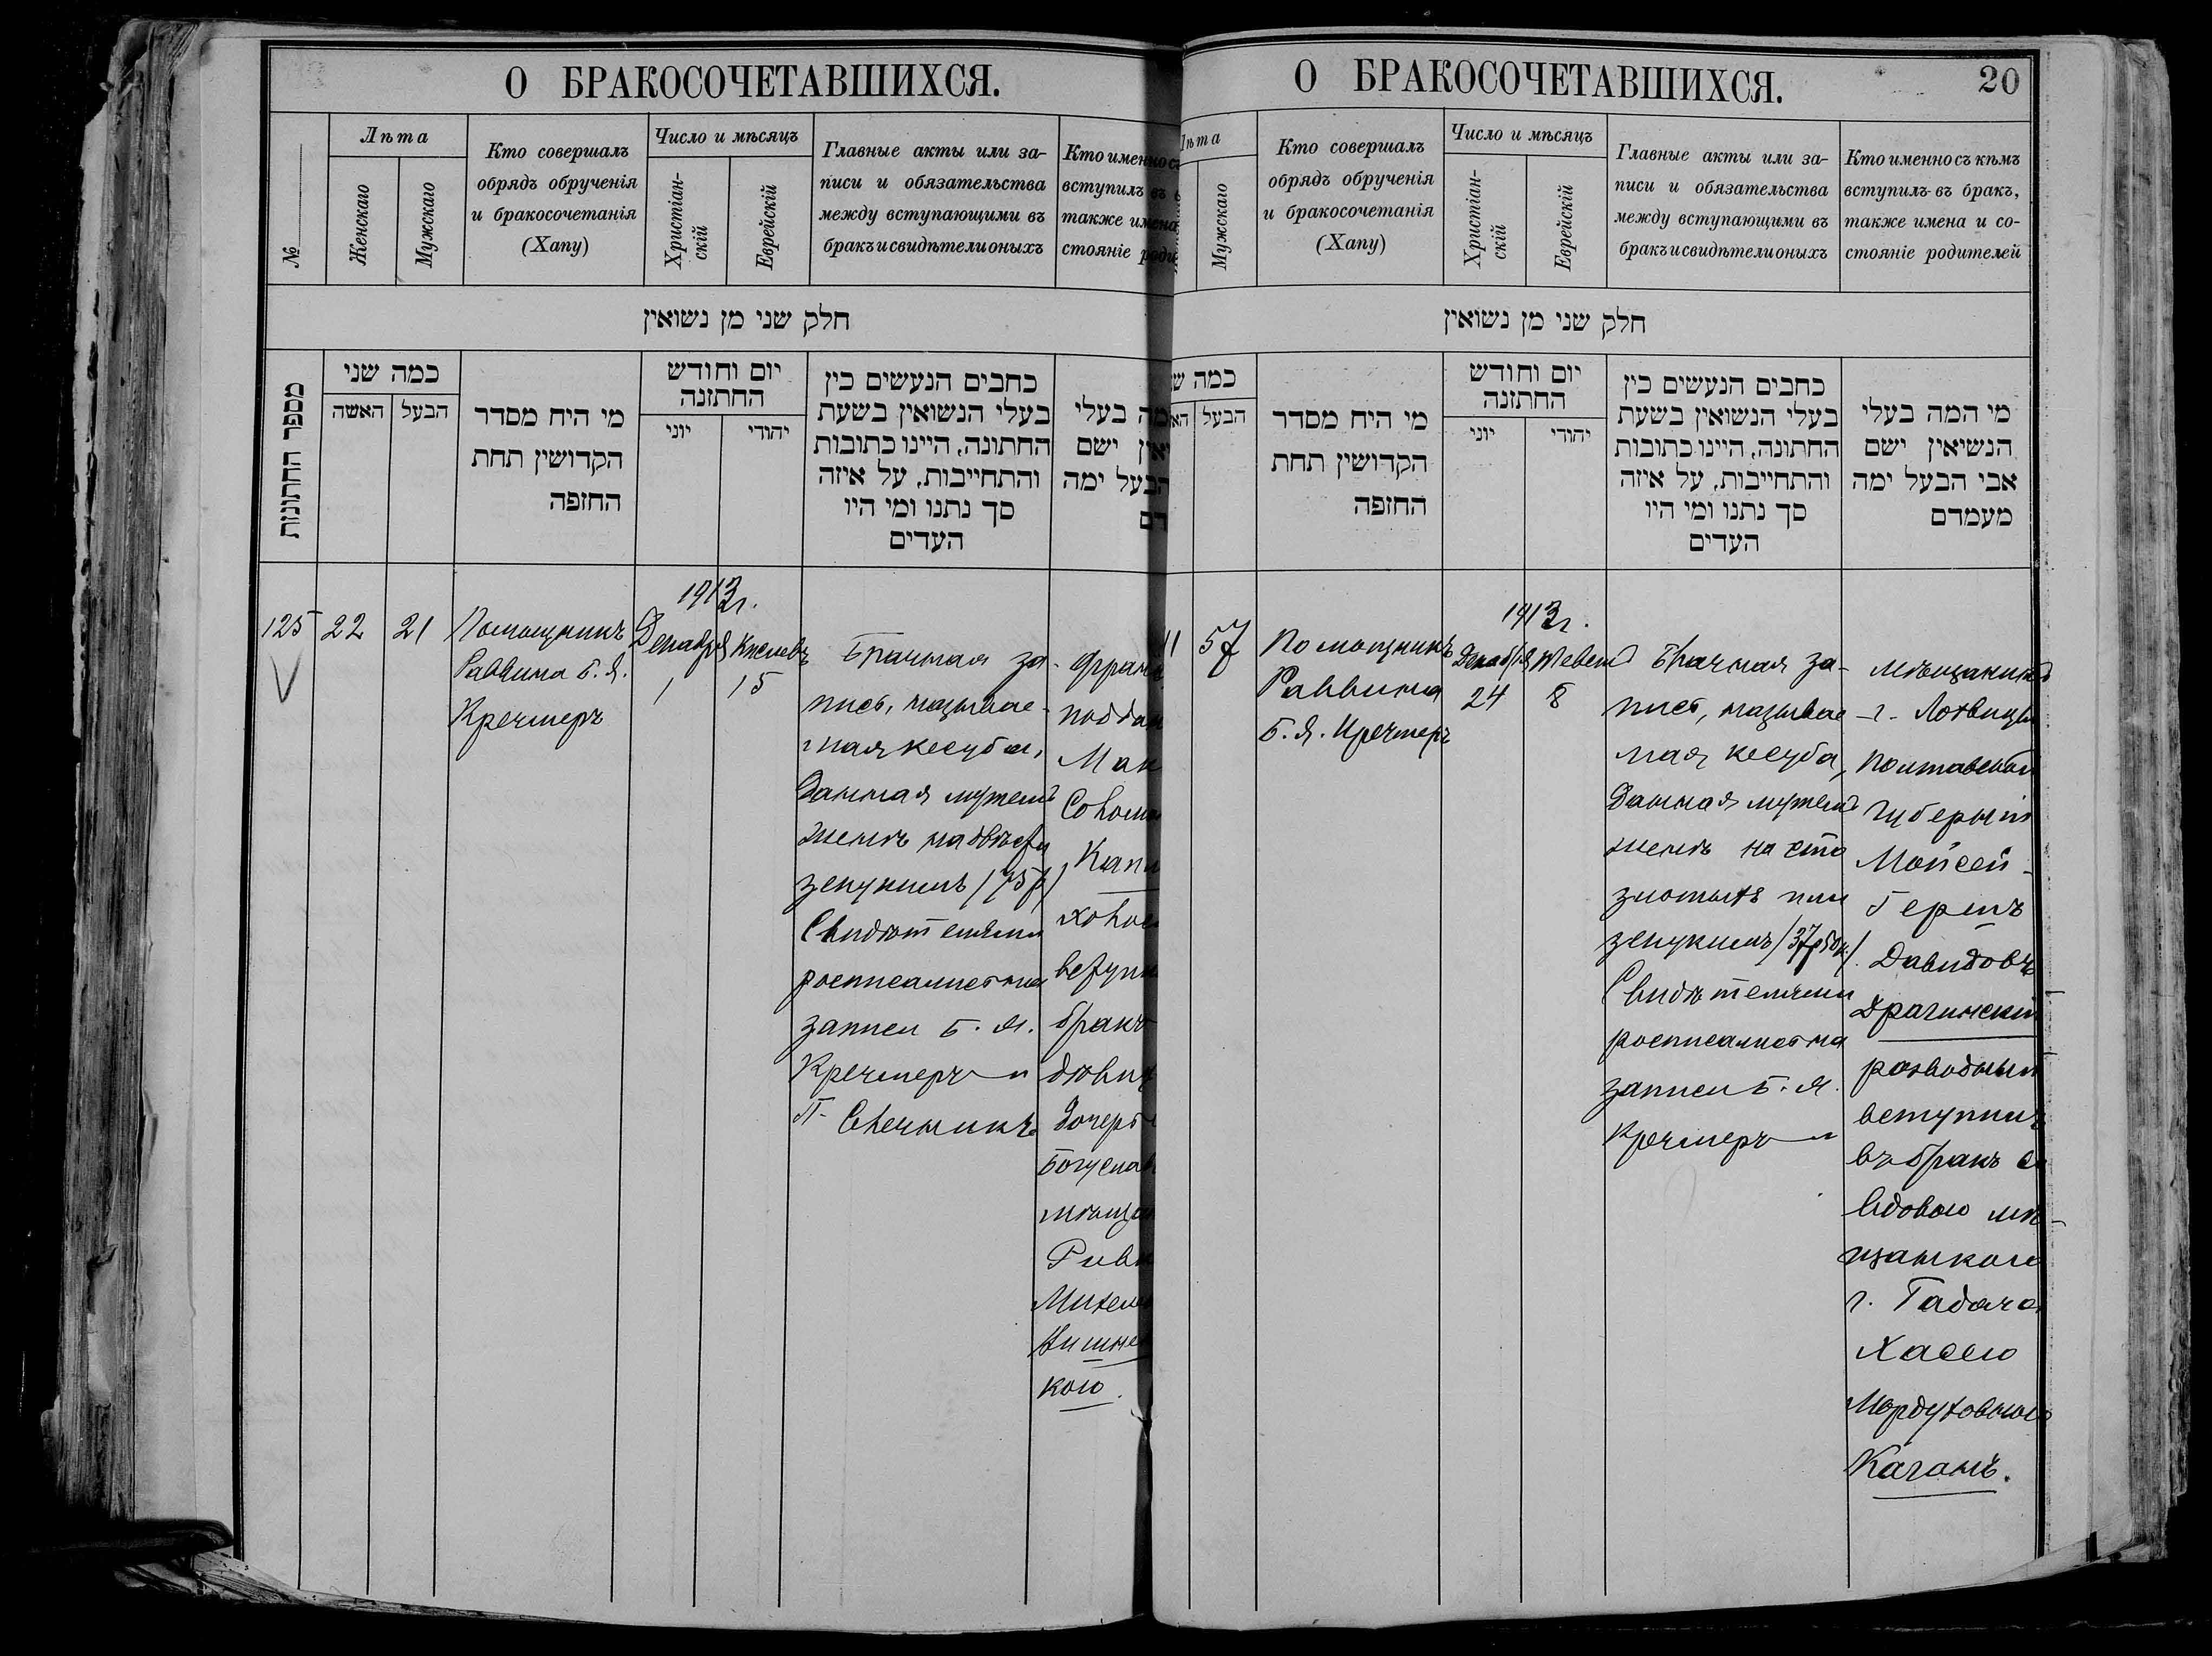 О БРАКОСОЧЕТАВШИХСЯ.
№
Лѣта
Женскаго
Мужскаго
Кто совершалъ
обрядъ обрученія
и бракосочетанія
(Хапу)
Число и мѣсяцъ
Христіан-
скій
Еврейскій
Главные акты или за-
писи и обязательства
между вступающими въ
бракъ и свидѣтели оныхъ
Кто именно съ
вступилъ въ
также имена
стояніе роди
חלק שני מן נשואין
מספר החתונות
כמה שני
האשה
הבעל
מי היח מסדר
הקדושין תחת
החזפה
יום וחודש
החתזנה
יוני
יהודי
כחבים הנעשים כין
בעלי הנשואין בשעת
החתונה, היינו כתובות
והתחייבות, על איזה
סך נתנו ומי היו
העדים
מה בעלי
יאין ישם
הבעל ימה
דם
125
22
21
Помощникъ
Раввина Б. Я.
Кречмеръ
1913 г.
Декабря
1
Кислевъ
15
Брачная за-
пись, называе-
мая кесуба,
данная мужемъ
женѣ на двѣсти
зекукимъ (75 р)
Свидѣтелями
росписались на
записи Б. Я.
Кречмеръ и
П. Свечникъ
Фран
поддан
Мак
Соломо
Капл
холос
вступи
бракъ
дѣвиц
дочерь
Богуслав
мѣщан
Ривк
Михел
Вишнев
кою.
О БРАКОСОЧЕТАВШИХСЯ.
20
Лѣта
Мужскаго
Кто совершалъ
обрядъ обрученія
и бракосочетанія
(Хапу)
Число и мѣсяцъ
Христіан-
скій
Еврейскій
Главные акты или за-
писи и обязательства
между вступающими въ
бракъ и свидѣтели оныхъ
Кто именно съ кѣмъ
вступилъ въ бракъ,
также имена и со-
стояніе родителей
חלק שני מן נשואין
כמה ש
הא
הבעל
מי היח מסדר
הקדושין תחת
החזפה
יום וחודש
החתזנה
יוני
יהודי
כחבים הנעשים כין
בעלי הנשואין בשעת
החתונה, היינו כתובות
והתחייבות, על איזה
סך נתנו ומי היו
העדים
מי המה בעלי
הנשיאין ישם
אבי הבעל ימה
מעמדם
1
57
Помощникъ
Раввина
Б. Я. Кречмеръ
1913 г.
Декабря
24
Теветъ
8
Брачная за-
пись, называе
мая кесуба,
данная мужемъ
женѣ на сто
злотыхъ или
зекукимъ (37 р 50 к).
Свидѣтелями
росписались на
записи Б. Я.
Кречмеръ и
Мѣщанинъ
г. Лохвицы
Полтавской
губерніи
Мойсей-
Гершъ
Давидовъ
Драгинскій
разводный
вступилъ
въ бракъ съ
вдовою мѣ-
щанкою
г. Гадяча
Хасею
Мордуховною
Каганъ.